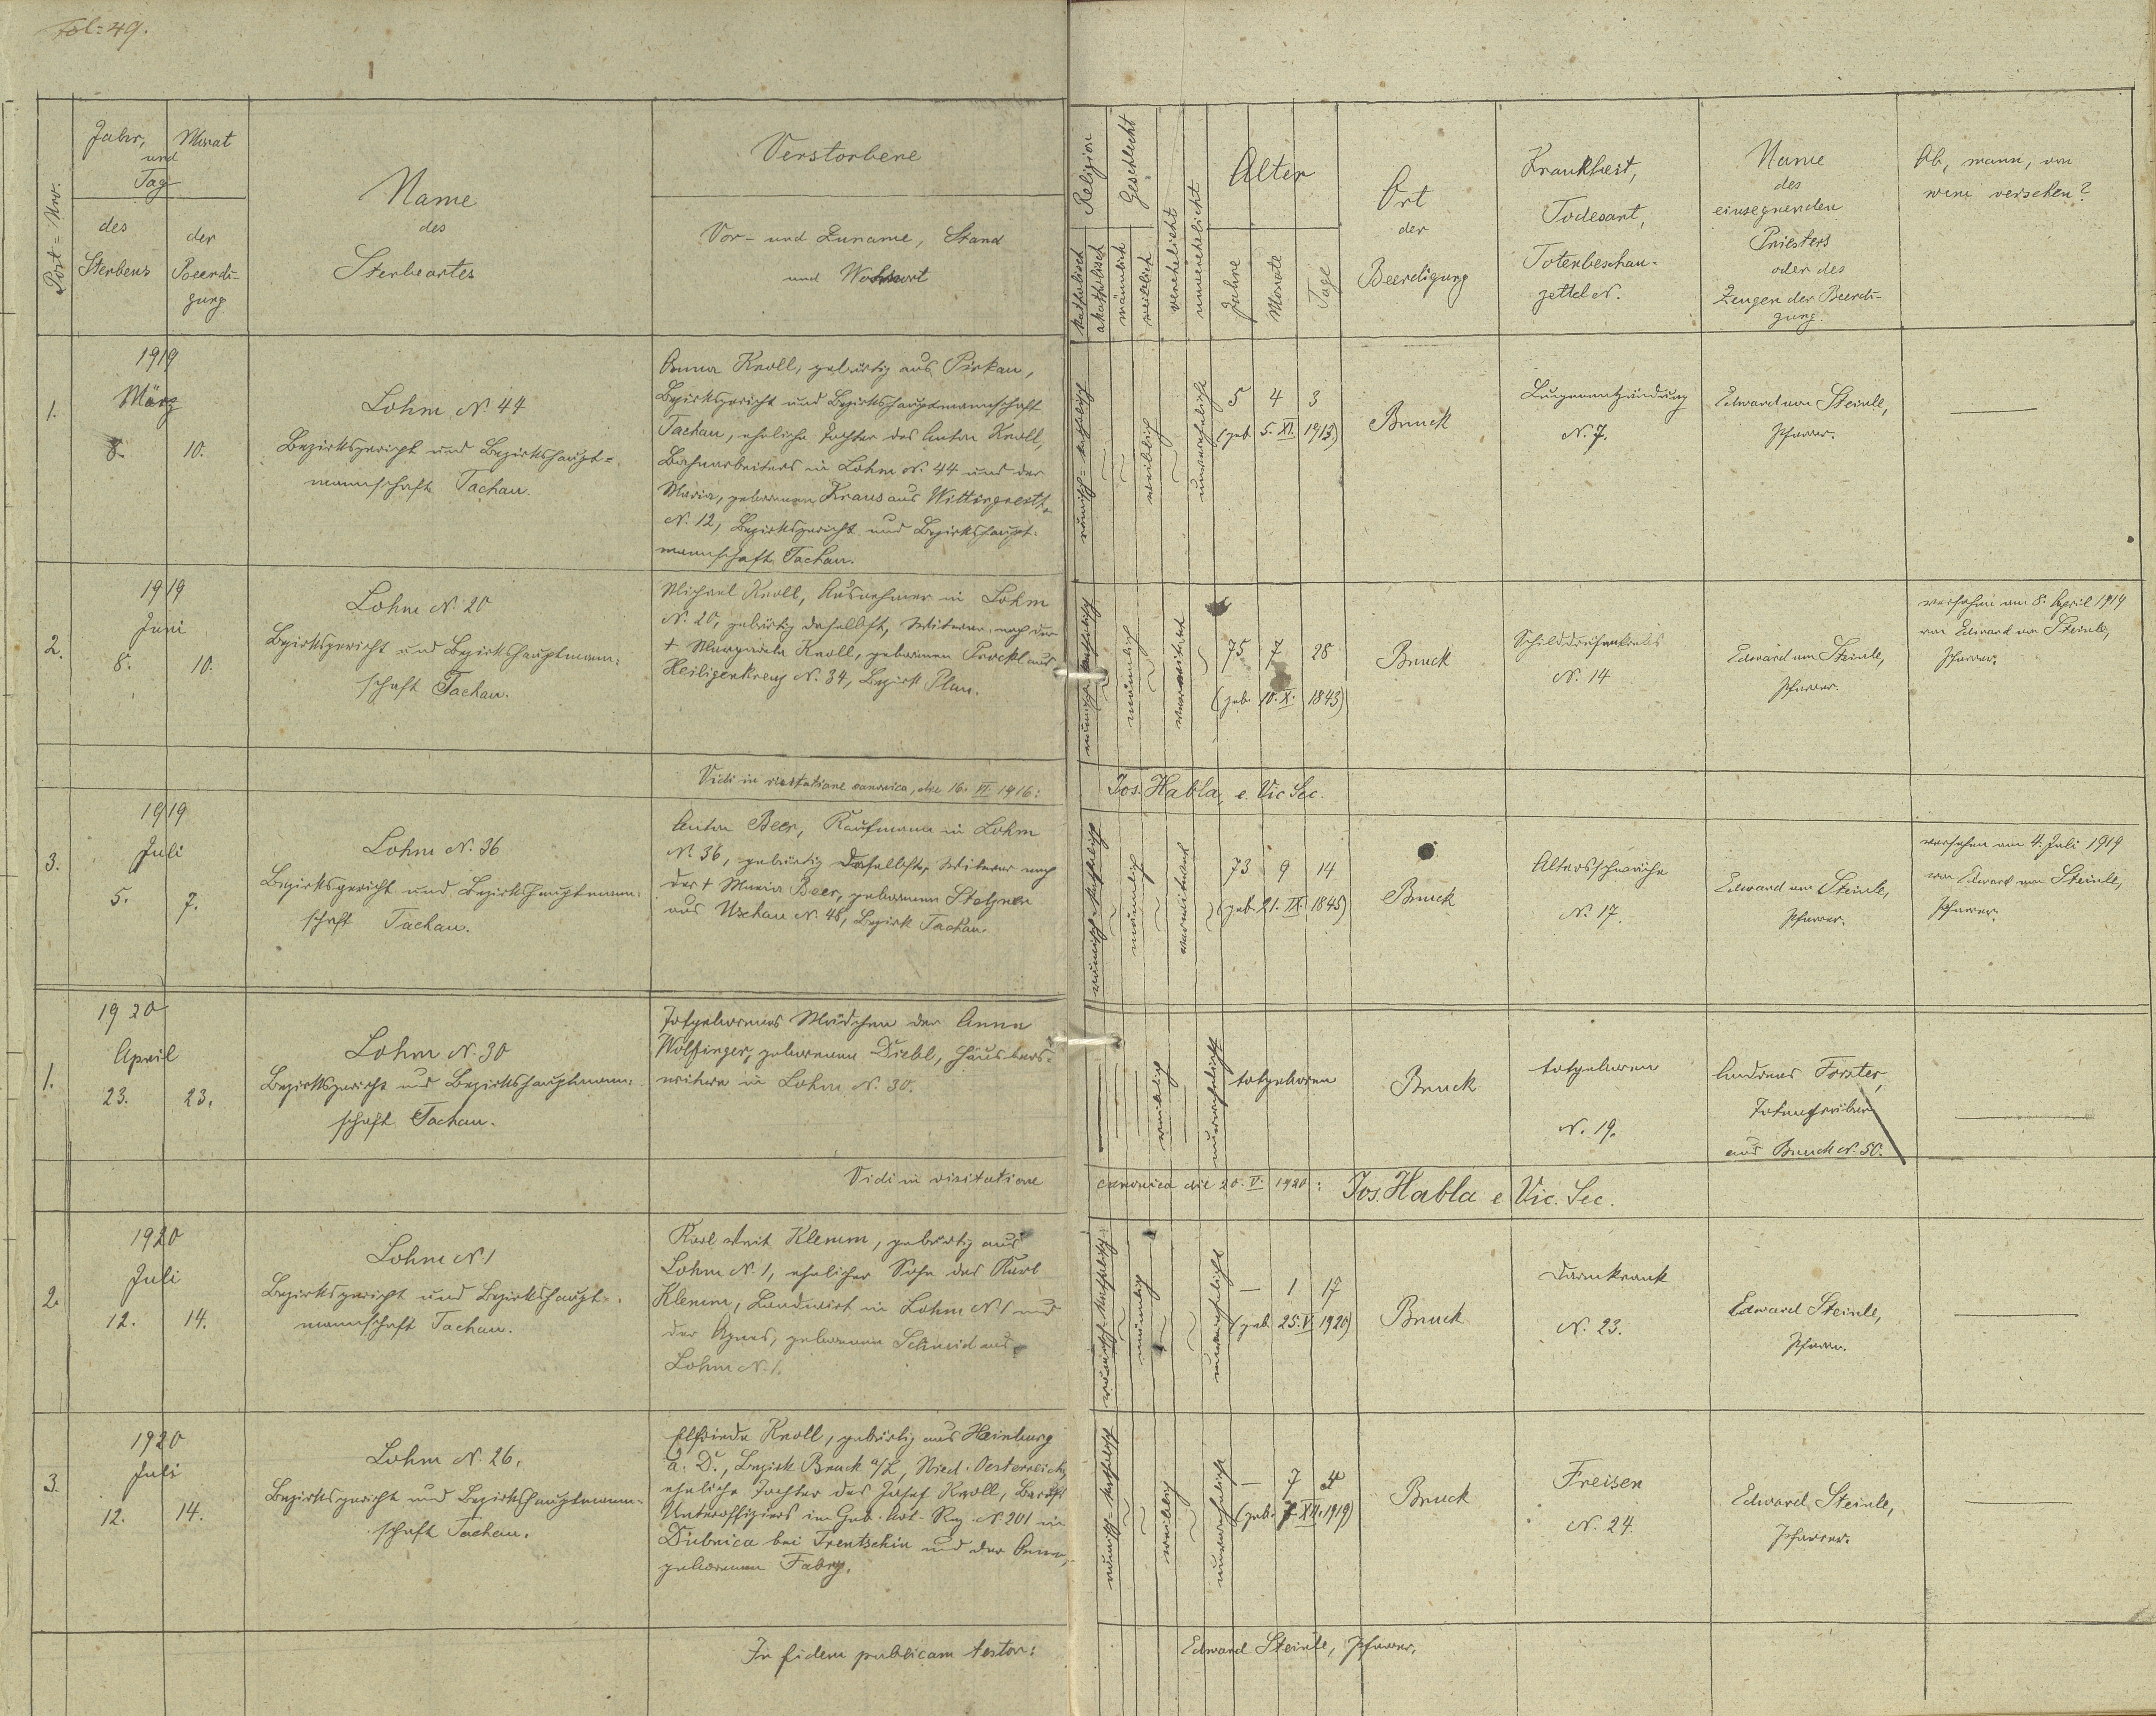 Fol: 49.
Post=Nro.
Jahr, Monat
und
Tag
des
Sterbens
der
Beerdi-
gung
Name
des
Sterbeortes
Verstorbene
Vor- und Zuname, Stand
und Wohnort
Religion
katholisch
akatholisch
Geschlecht
männlich
weiblich
verehelicht
unverehelicht
Alter
Jahre
Monate
Tage
Ort
der
Beerdigung
Krankheit,
Todesart,
Totenbeschau-
zettel N.
Name
des
einsegnenden
Priesters
oder des
Zeugen der Beerdi-
gung.
Ob, wann, von
wem versehen?
1.
1919
März
8. 10.
Lohm N. 44
Bezirksgericht und Bezirkshaupt=
mannschaft Tachau.
Anna Knoll, gebürtig aus Pirkau,
Bezirksgericht und Bezirkshauptmannschaft
Tachau, eheliche Tochter des Anton Knoll,
Bahnarbeiters in Lohm N. 44 und der
Maria, geborenen Kraus aus Wittingreith
N. 12, Bezirksgericht und Bezirkshaupt-
mannschaft Tachau.
römisch=katholisch
weiblich
unverehelicht
5 4 3
(geb. 5. XI. 1913)
Bruck
Lungenentzündung
N. 7.
Edward von Steinle,
Pfarrer.
2.
1919
Juni
8. 10.
Lohm N. 20
Bezirksgericht und Bezirkshauptmann-
schaft Tachau.
Michael Knoll, Ausnehmer in Lohm
N. 20, gebürtig daselbst, Witwer nach der
† Margareta Knoll, geborenen Prockl aus
Heiligenkreuz N. 34, Bezirk Plan.
römisch-katholisch
männlich
verwitwet
75 7 28
(geb. 10. X. 1843)
Bruck
Schilddrüsenkrebs
N. 14
Edward von Steinle,
Pfarrer.
versehen am 8. April 1919
von Edward von Steinle,
Pfarrer.
Vidi in visitatione canonica, die 16. VI. 1916: Jos. Habla, e. Vic Sec.
3.
1919
Juli
5. 7.
Lohm N. 36
Bezirksgericht und Bezirkshauptmann-
schaft Tachau.
Anton Beer, Kaufmann in Lohm
N. 36, gebürtig daselbst, Witwer nach
der † Maria Beer, geborenen Stelzner
aus Uschau N. 48, Bezirk Tachau.
römisch-katholisch
männlich
verwitwet
73 9 14
(geb. 21. IX. 1845)
Bruck
Altersschwäche
N. 17.
Edward von Steinle,
Pfarrer.
versehen am 4. Juli 1919
von Edward von Steinle,
Pfarrer.
1.
1920
April
23. 23.
Lohm N. 30
Bezirksgericht und Bezirkshauptmann-
schaft Tachau.
Totgeborenes Mädchen der Anna
Wolfinger, geborenen Diebl, Häuslers-
witwe in Lohm N. 30.
weiblich
unverehelicht
totgeboren
Bruck
totgeboren
N. 19.
Andreas Forster,
Totengräber
aus Bruck N. 50.
Vidi in visitatione canonica die 20. V. 1920: Jos. Habla e. Vic. Sec.
2.
1920
Juli
12. 14.
Lohm N 1
Bezirksgericht und Bezirkshaupt-
mannschaft Tachau.
Karl Veit Klemm, gebürtig aus
Lohm N. 1, ehelicher Sohn des Karl
Klemm, Landwirt in Lohm N. 1 und
der Agnes, geborenen Schneid aus
Lohm N. 1.
römisch-katholisch
männlich
unverehelicht
— 1 17
(geb. 25. V. 1920)
Bruck
Darmkrank
N. 23.
Edward Steinle,
Pfarrer.
3.
1920
Juli
12. 14.
Lohm N. 26.
Bezirksgericht und Bezirkshauptmann-
schaft Tachau.
Elfriede Knoll, gebürtig aus Hainburg
a. D., Bezirk Bruck a/L, Nied. Oesterreich,
eheliche Tochter des Josef Knoll, Berufs
Unteroffiziers in Geb. Art. Reg. N. 201 in
Dubnica bei Trentschin und der Anna,
geborenen Fabry.
römisch=katholisch
weiblich
unverehelicht
— 7 4
(geb. 7. XII. 1919)
Bruck
Freisen
N. 24.
Edward Steinle,
Pfarrer.
In fidem publicam testor: Edward Steinle, Pfarrer.